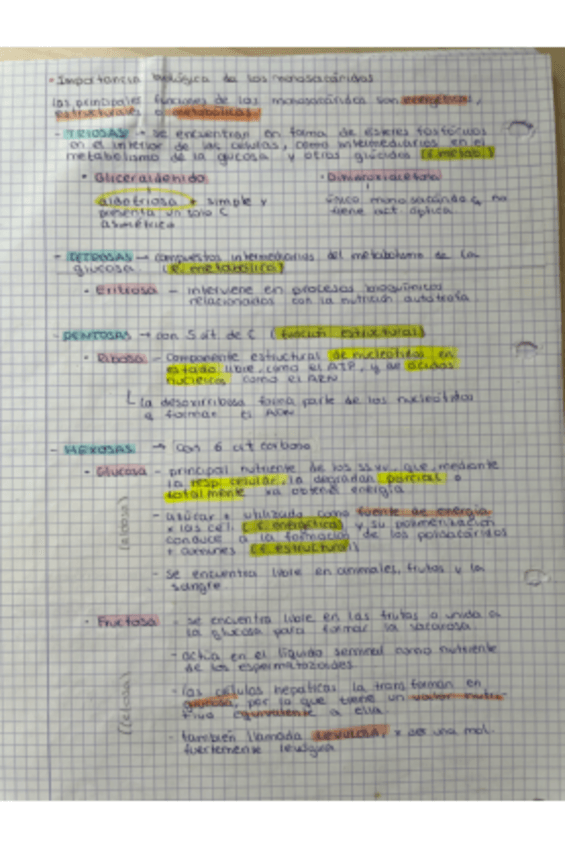 · Importancia biológica de los monosacáridos
las principales funciones de los monosacáridos son energéticas,
estructurales o metabólicas.
- TRIOSAS → se encuentran en forma de ésteres fosfóricos
en el interior de las células, como intermediarios en el
metabolismo de la glucosa y otros glúcidos (f. metab.)
· Gliceraldehído
aldotriosa + simple y
presenta un solo C
asimétrico
· Dihidroxiacetona
único monosacárido q no
tiene act. óptica
- TETROSAS → compuestos intermediarios del metabolismo de la
glucosa (f. metabólica)
· Eritrosa - interviene en procesos bioquímicos
relacionados con la nutrición autótrofa
- PENTOSAS → con 5 át. de C (función estructural)
· Ribosa - componente estructural de nucleótidos en
estado libre, como el ATP, y de ácidos
nucleicos como el ARN
la desoxirribosa forma parte de los nucleótidos
q forman el ADN
- HEXOSAS → con 6 át carbono
· Glucosa - principal nutriente de los ss.vv. que, mediante
la resp celular, la degradan parcial o
totalmente xa obtener energía
- azúcar + utilizado como fuente de energía
x las cél. (f. energética) y su polimerización
conduce a la formación de los polisacáridos
+ comunes (f. estructural)
- se encuentra libre en animales, frutos y la
sangre
(aldosa)
· Fructosa - se encuentra libre en las frutas o unida a
la glucosa para formar la sacarosa
- actúa en el líquido seminal como nutriente
de los espermatozoides
- las células hepáticas la transforman en
glucosa, por lo que tiene un valor nutri-
tivo equivalente a ella
- también llamada LEVULOSA, x ser una mol.
fuertemente levógira
(cetosa)